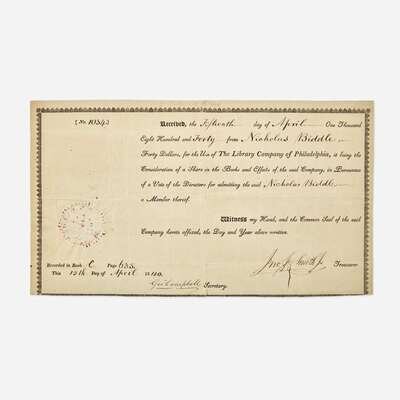 [No. 1034]
Received, the Fifteenth day of April One Thousand
Eight Hundred and Forty from Nicholas Biddle
Forty Dollars, for the Use of The Library Company of Philadelphia, it being the
Consideration of a Share in the Books and Effects of the said Company, in Pursuance
of a Vote of the Directors for admitting the said Nicholas Biddle
a Member thereof.
Witness my Hand, and the Common Seal of the said
Company hereto affixed, the Day and Year above written.
Recorded in Book C Page 653
This 15th Day of April 1840.
Jno. J. Smith Jr. Treasurer
Geo Campbell Secretary.